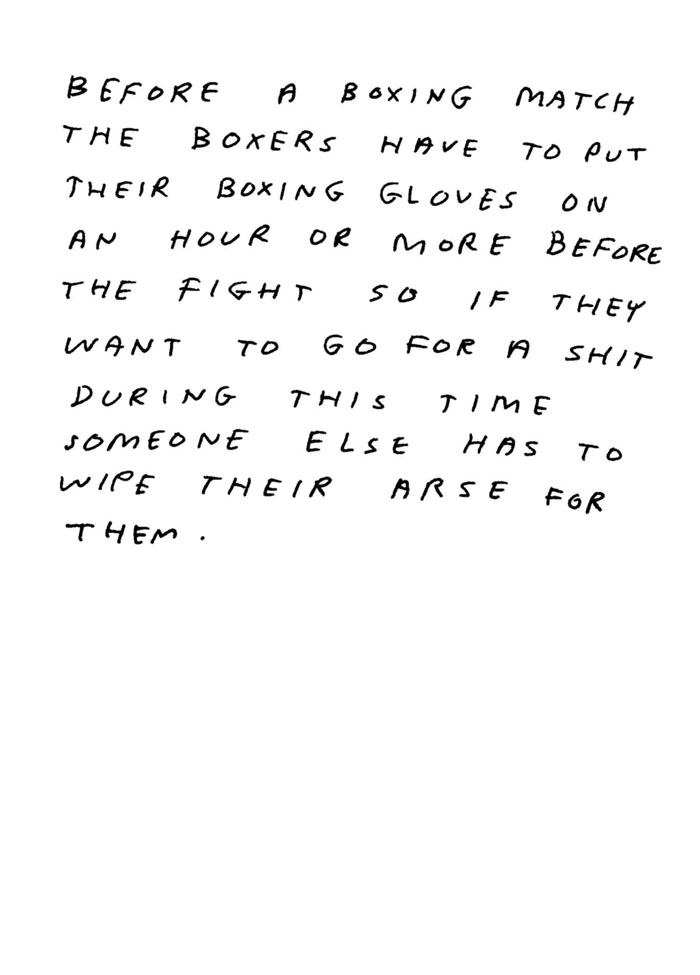 BEFORE A BOXING MATCH
THE BOXERS HAVE TO PUT
THEIR BOXING GLOVES ON
AN HOUR OR MORE BEFORE
THE FIGHT SO IF THEY
WANT TO GO FOR A SHIT
DURING THIS TIME
SOMEONE ELSE HAS TO
WIPE THEIR ARSE FOR
THEM.